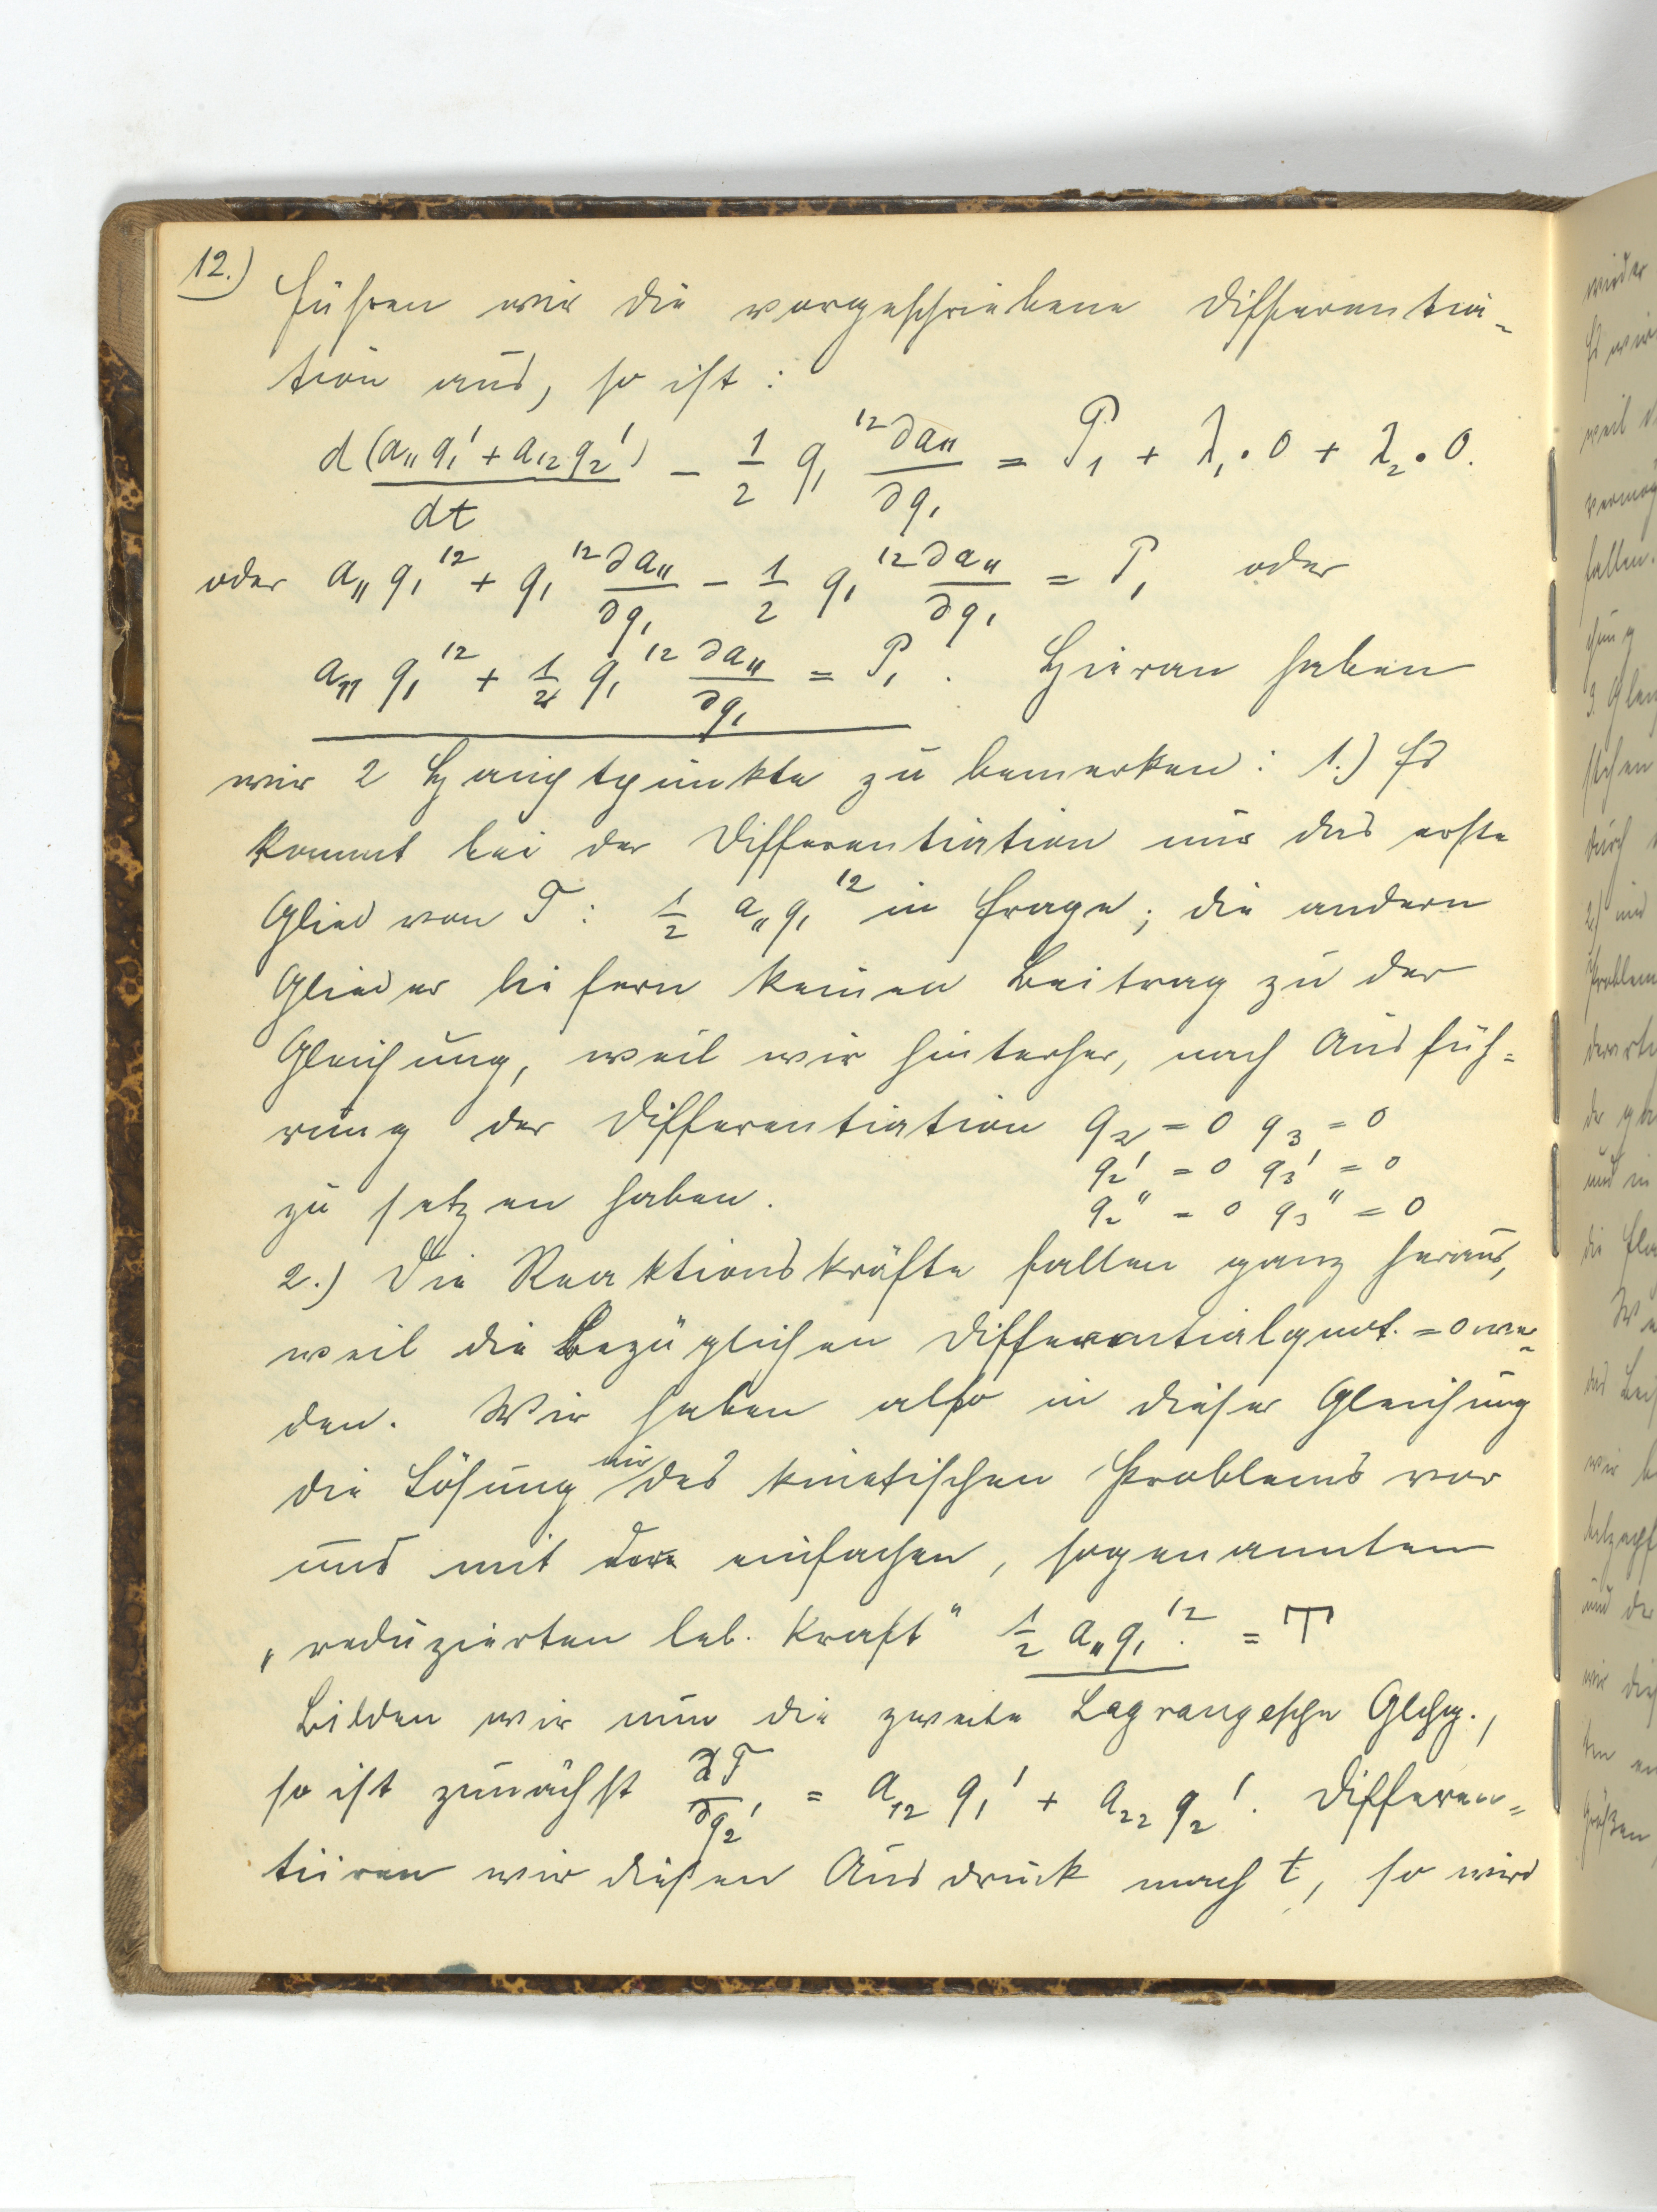 12.)
Führen wir die vorgeschriebene Differentia-
tion aus, so ist:
d(a₁₁ q₁' + a₁₂ q₂')/dt − 1/2 q₁'² ∂a₁₁/∂q₁ = P₁ + λ₁·0 + λ₂·0.
oder a₁₁ q₁'² + q₁'² ∂a₁₁/∂q₁ − 1/2 q₁'² ∂a₁₁/∂q₁ = P₁ oder
a₁₁ q₁'² + 1/2 q₁'² ∂a₁₁/∂q₁ = P₁. Hieran haben
wir 2 Hauptpunkte zu bemerken: 1.) Es
kommt bei der Differentiation nur das erste
Glied von T: 1/2 a₁₁ q₁'² in Frage; die andern
Glieder liefern keinen Beitrag zu der
Gleichung, weil wir hinterher, nach Ausfüh=
rung der Differentiation q₂ = 0 q₃ = 0
q₂' = 0 q₃' = 0
zu setzen haben. q₂'' = 0 q₃'' = 0
2.) Die Reaktionskräfte fallen ganz heraus,
weil die Bezüglichen Differentialquot. = 0 wer-
den. Wir haben also in dieser Gleichung
die Lösung des kinetischen Problems vor
uns mit einfachen, sogenannten
„reduzierten leb. Kraft“ 1/2 a₁₁ q₁'². = T
Bilden wir nun die zweite Lagrangesche Glchg.,
so ist zunächst ∂T/∂q₂' = a₁₂ q₁' + a₂₂ q₂'. Differen=
tiiren wir diesen Ausdruck nach t, so wird